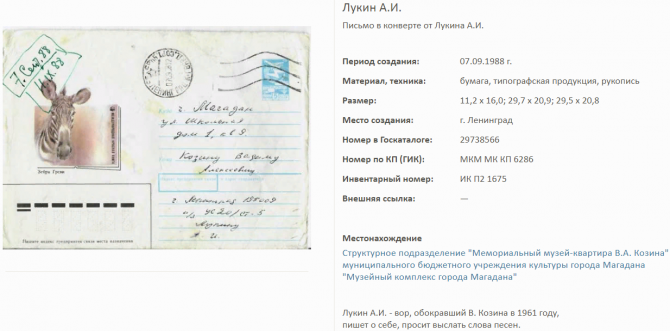 Лукин А.И.
Письмо в конверте от Лукина А.И.
Период создания: 07.09.1988 г.
Материал, техника: бумага, типографская продукция, рукопись
Размер: 11,2 х 16,0; 29,7 х 20,9; 29,5 х 20,8
Место создания: г. Ленинград
Номер в Госкаталоге: 29738566
Номер по КП (ГИК): МКМ МК КП 6286
Инвентарный номер: ИК П2 1675
Внешняя ссылка: —
Местонахождение
Структурное подразделение "Мемориальный музей-квартира В.А. Козина"
муниципального бюджетного учреждения культуры города Магадана
"Музейный комплекс города Магадана"
Лукин А.И. - вор, обокравший В. Козина в 1961 году,
пишет о себе, просит выслать слова песен.
7. Сент. 88
Зебра Греви
г. Магадан
ул Школьная
дом 1, кв 9
Козину Вадиму
Алексеевичу